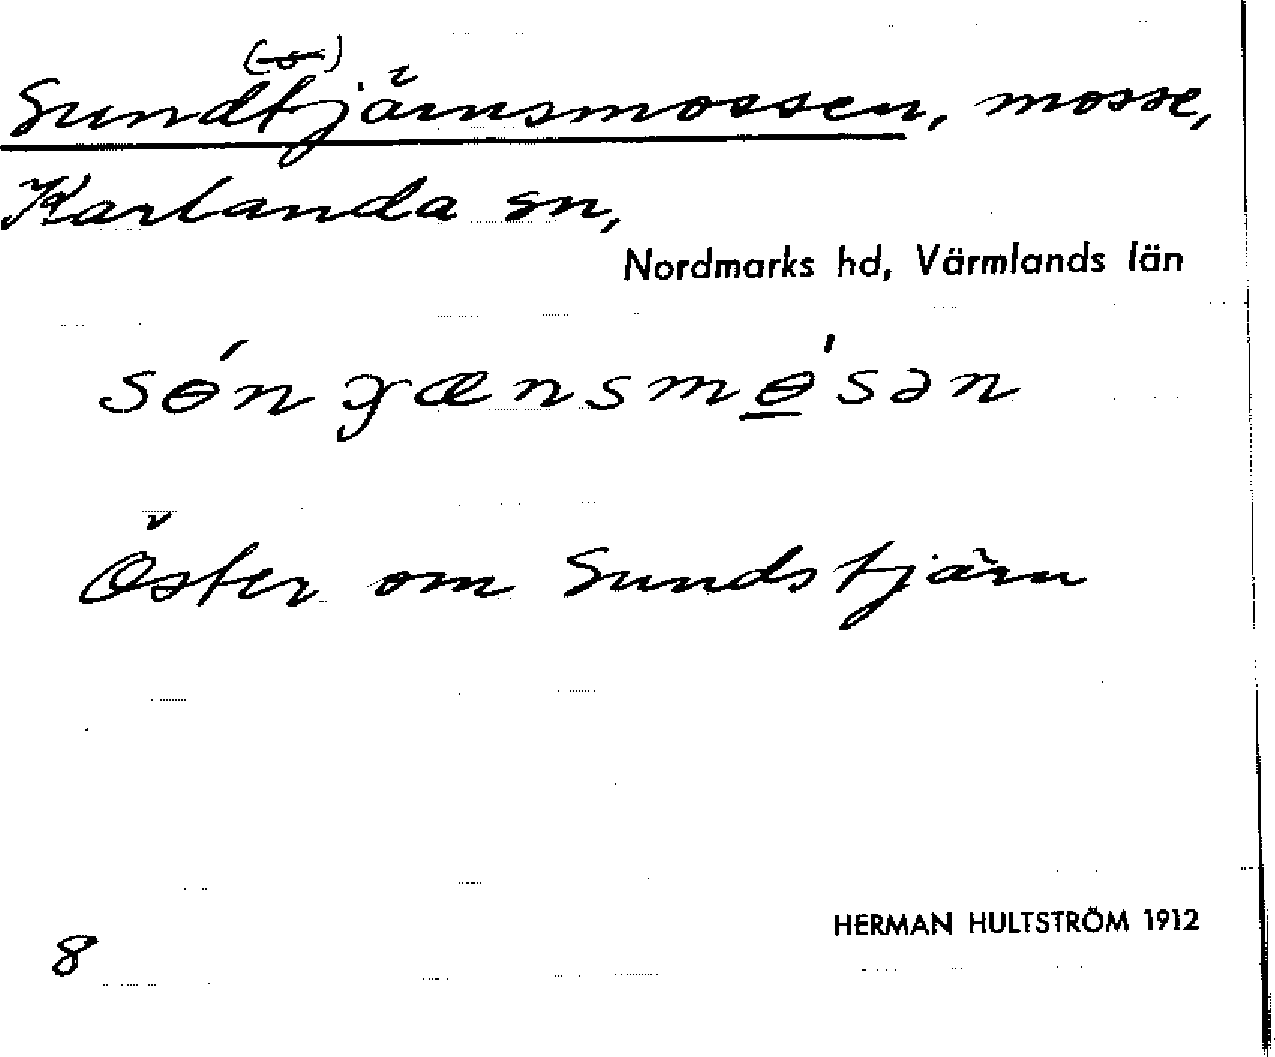 (-s-)
Sundtjärnsmossen, mosse,
Karlanda sn,
Nordmarks hd, Värmlands län
sɵ́n ɟænsmɵ̲́sən
Öster om Sundstjärn
HERMAN HULTSTRÖM 1912
8